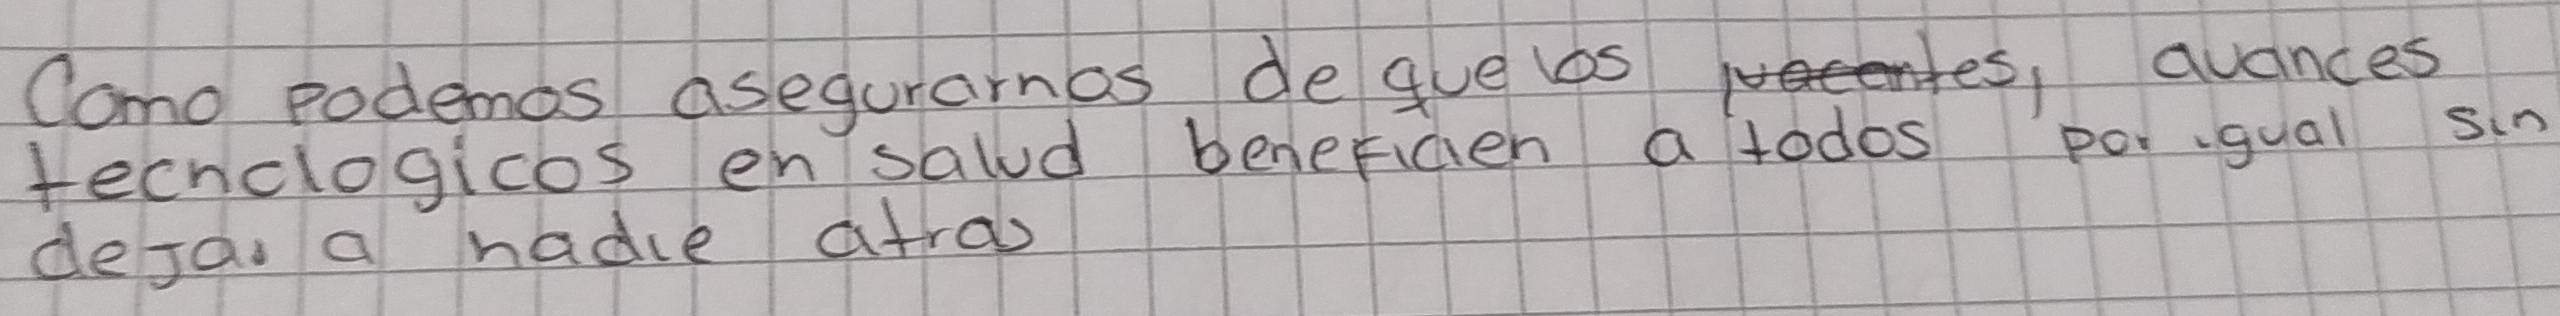 Como podemos asegurarnos de que los avances
tecnologicos en salud beneficien a todos por igual sin
dejar a nadie atras